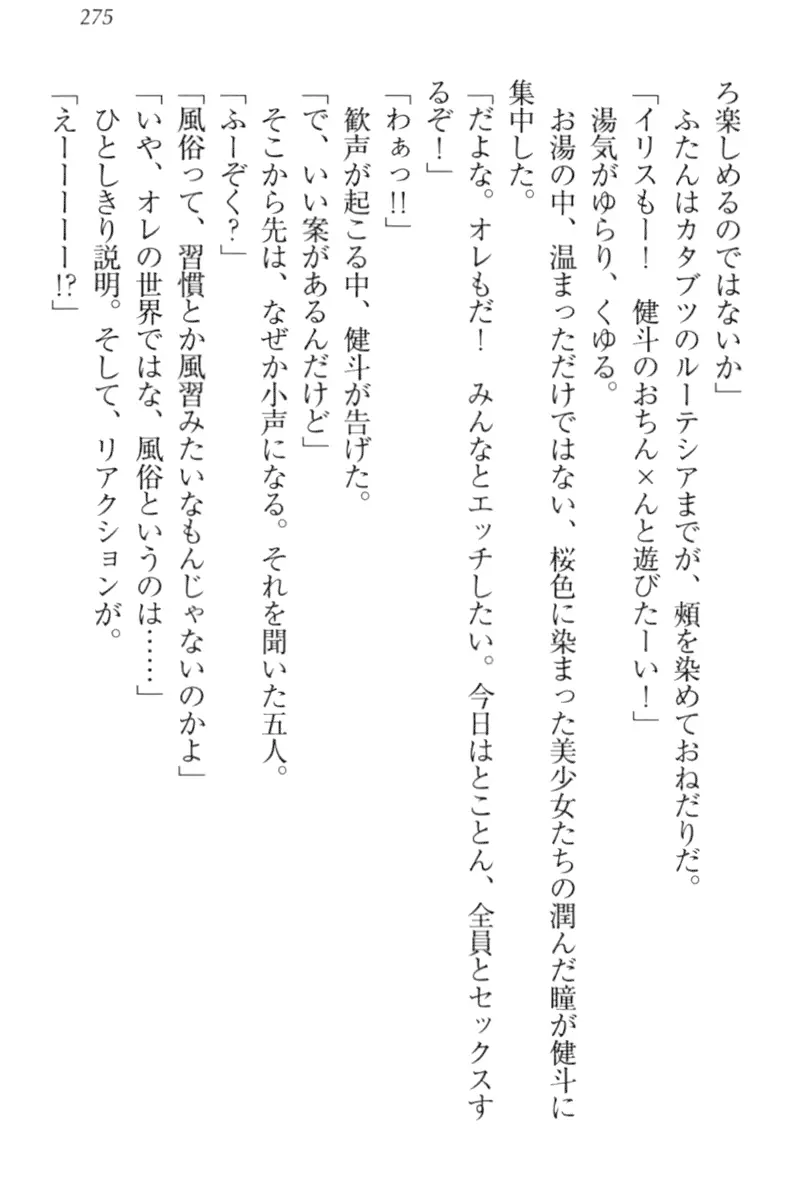 275
ろ楽しめるのではないか」
ふたんはカタブツのルーテシアまでが、頰を染めておねだりだ。
「イリスもー！　健斗のおちん×んと遊びたーい！」
湯気がゆらり、くゆる。
お湯の中、温まっただけではない、桜色に染まった美少女たちの潤んだ瞳が健斗に
集中した。
「だよな。オレもだ！　みんなとエッチしたい。今日はとことん、全員とセックスす
るぞ！」
「わぁっ!!」
歓声が起こる中、健斗が告げた。
「で、いい案があるんだけど」
そこから先は、なぜか小声になる。それを聞いた五人。
「ふーぞく？」
「風俗って、習慣とか風習みたいなもんじゃないのかよ」
「いや、オレの世界ではな、風俗というのは……」
ひとしきり説明。そして、リアクションが。
「えーーーーー!?」